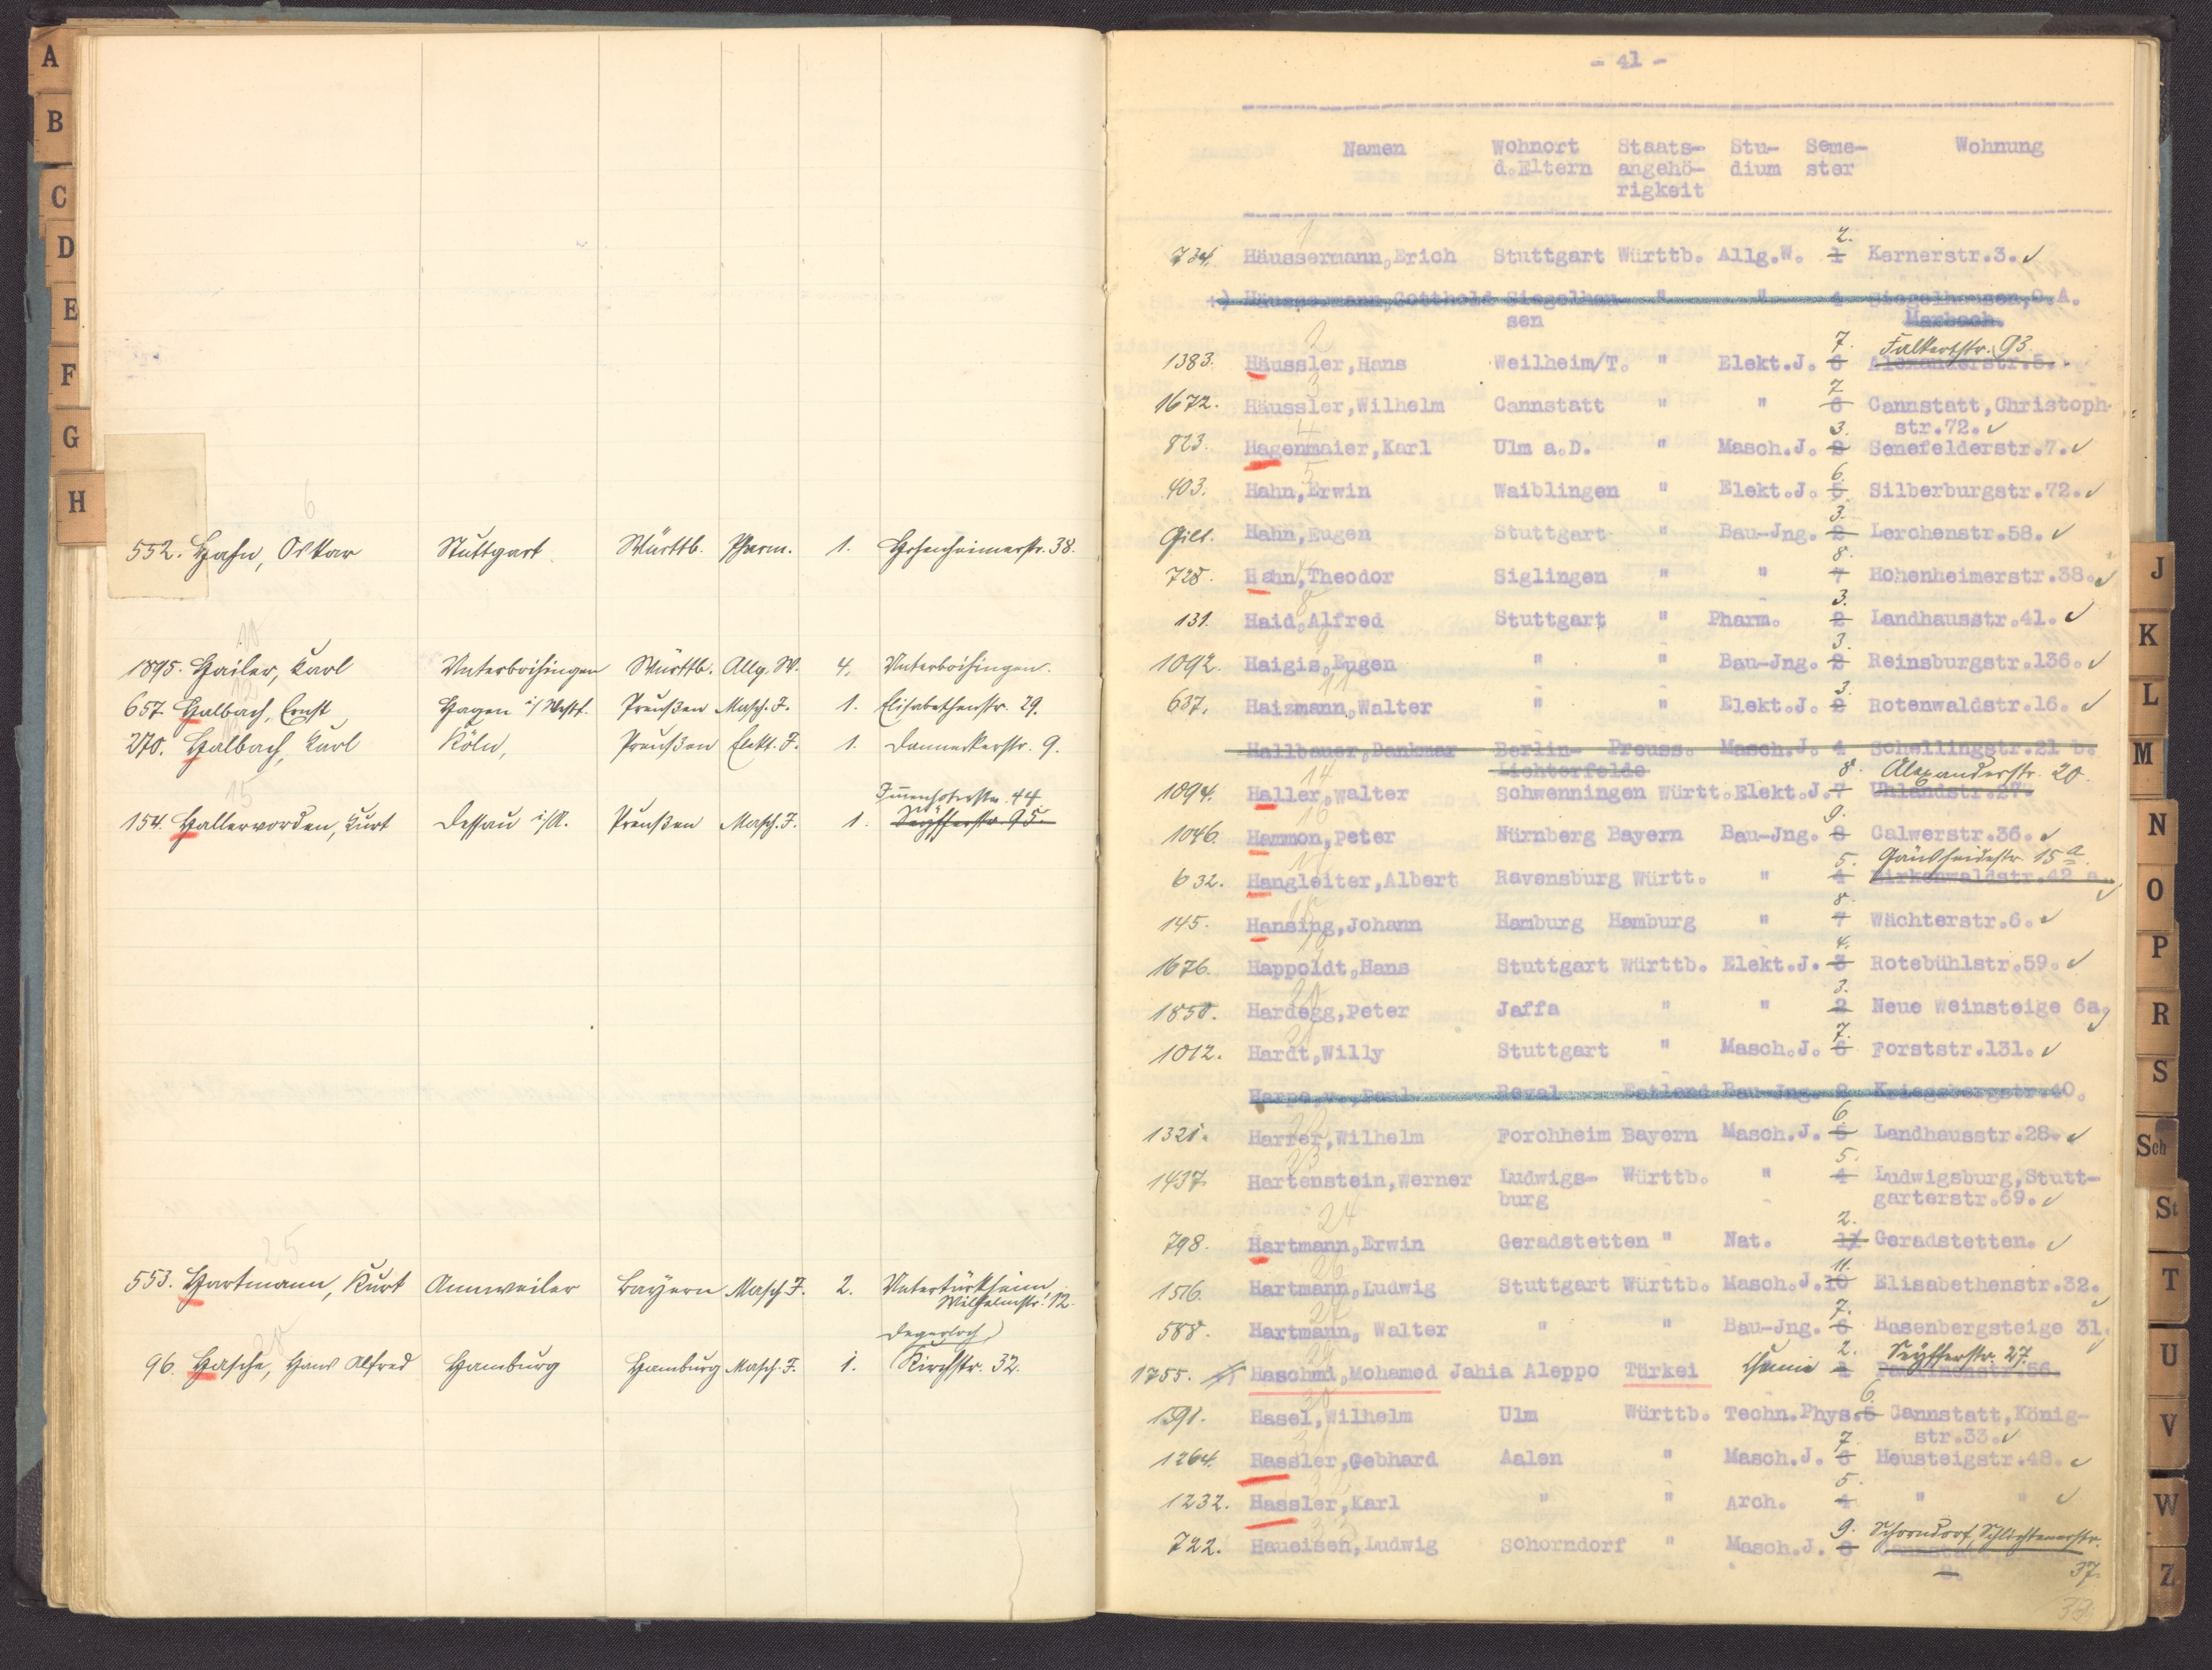 A
B
C
D
E
F
G
H
6
552. Hahn, Oskar Stuttgart. Württb. Pharm. 1. Hohenheimerstr. 38.
10
1895. Hailer, Karl Unterboihingen Württb. Allg. W. 4. Unterboihingen.
657. Halbach, Ernst Hagen i/Westf. Preußen Masch. J. 1. Elisabethenstr. 29.
270. Halbach, Karl Köln, Preußen Elekt. J. 1. Danneckerstr. 9.
15
154. Hallervorden, Kurt Dessau i/A. Preußen Masch. J. 1. Immenhoferstr. 44
Seyfferstr. 95.
25
553. Hartmann, Kurt Annweiler Bayern Masch J. 2. Untertürkheim
Wilhelmstr. 12.
Degerloch,
96. Hasche, Hans Alfred Hamburg Hamburg Masch. J. 1. Kirchstr. 32.
- 41 -
Namen Wohnort Staats- Stu- Seme- Wohnung
d.Eltern angehö- dium ster
rigkeit
734. Häussermann,Erich Stuttgart Württb. Allg.W. 1 2. Kernerstr.3.
Häussermann,Gotthold Siegelhau- " " 4 Siegelhausen,O.A.
sen Marbach.
7. Falkertstr. 93.
1383. Häussler,Hans Weilheim/T. " Elekt.J. 6 Alexanderstr.5.
1672. Häussler,Wilhelm Cannstatt " " 6 7 Cannstatt,Christoph-
str.72.
823. Hagenmaier,Karl Ulm a.D. " Masch.J. 2 3. Senefelderstr.7.
403. Hahn,Erwin Waiblingen " Elekt.J. 5 6. Silberburgstr.72.
Hahn,Eugen Stuttgart " Bau-Jng. 2 3. Lerchenstr.58.
728. Hahn,Theodor Siglingen " " 7 8. Hohenheimerstr.38.
131. Haid,Alfred Stuttgart " Pharm. 2 3. Landhausstr.41.
1092. Haigis,Eugen " " Bau-Jng. 2 3. Reinsburgstr.136.
637. Haizmann,Walter " " Elekt.J. 2 3. Rotenwaldstr.16.
Hallbauer,Dankmar Berlin- Preuss. Masch.J. 4 Schellingstr.21 b.
Lichterfelde
8. Alexanderstr. 20.
1094. Haller,Walter Schwenningen Württ.Elekt.J.7 Uhlandstr.27.
1046. Hammon,Peter Nürnberg Bayern Bau-Jng. 8 9. Calwerstr.36.
5. Gänsheidestr. 15 a.
632. Hangleiter,Albert Ravensburg Württ. " 4 Birkenwaldstr.42 a.
145. Hansing,Johann Hamburg Hamburg " 7 8. Wächterstr.6.
1676. Happoldt,Hans Stuttgart Württb. Elekt.J. 3 4. Rotebühlstr.59.
1850. Hardegg,Peter Jaffa " " 2 3. Neue Weinsteige 6a
1012. Hardt,Willy Stuttgart " Masch.J. 6 7. Forststr.131.
Harpe,v.,Paul Reval Estland Bau-Jng. 8 Kriegsbergstr.40.
1321. Harrer,Wilhelm Forchheim Bayern Masch.J. 5 6. Landhausstr.28.
1437. Hartenstein,Werner Ludwigs- Württb. " 4 5. Ludwigsburg,Stutt-
burg garterstr.69.
24
798. Hartmann,Erwin Geradstetten " Nat. 2. Geradstetten.
1516. Hartmann,Ludwig Stuttgart Württb. Masch.J.10 11. Elisabethenstr.32.
588. Hartmann, Walter " " Bau-Jng. 6 7. Hasenbergsteige 31.
2. Seyfferstr. 27.
1755. Haschmi,Mohamed Jahia Aleppo Türkei Chemie 1 Paulinenstr.56.
1591. Hasel,Wilhelm Ulm Württb. Techn.Phys.5 6. Cannstatt,König-
str.33.
1264. Hassler,Gebhard Aalen " Masch.J. 6 7. Heusteigstr.48.
1232. Hassler,Karl " " Arch. 4 5. " "
722. Haueisen,Ludwig Schorndorf " Masch.J. 8 9. Schorndorf, Schlichtenerstr.
37.
J
K
L
M
N
O
P
R
S
Sch
St
T
U
V
W
Z